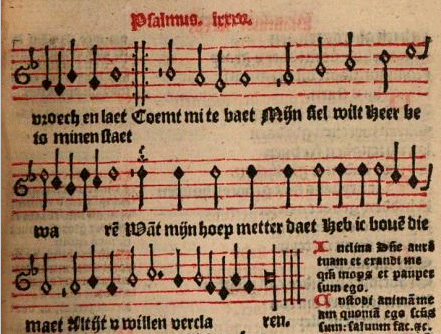 Psalmus. lxxxv.
vroech en laet Coemt mi te baet Mijn siel wilt Heer be
in minen staet
wa rē Wāt mijn hoep metter daet Heb ic bouē die
maet Altijt v willen vercla ren.
Inclina Dn̄e aurē
tuam et exaudi me
qm̄ inops et pauper
sum ego.
Custodi animā me
am quoniā ego scūs
sum: saluum fac. &c.